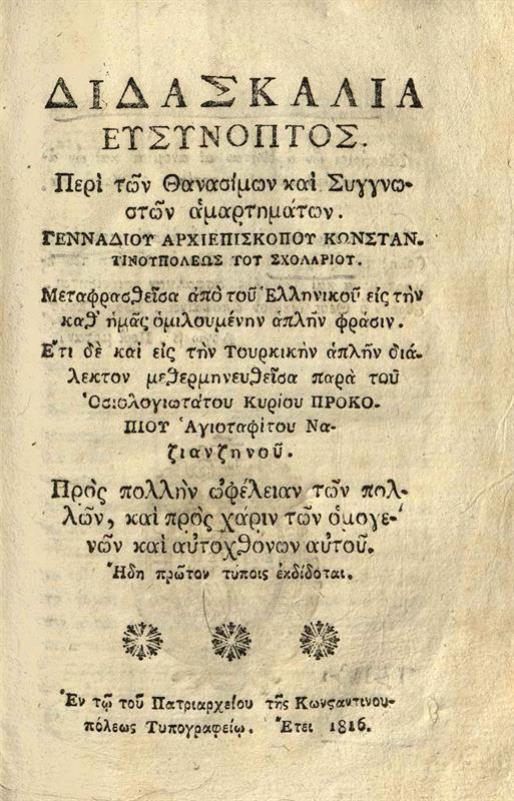 ΔΙΔΑΣΚΑΛΙΑ
ΕΥΣΥΝΟΠΤΟΣ.
Περὶ τῶν Θανασίμων καὶ Συγγνω-
στῶν ἁμαρτημάτων.
ΓΕΝΝΑΔΙΟΥ ΑΡΧΙΕΠΙΣΚΟΠΟΥ ΚΩΝΣΤΑΝ.
ΤΙΝΟΥΠΟΛΕΩΣ ΤΟΥ ΣΧΟΛΑΡΙΟΥ.
Μεταφρασθεῖσα ἀπὸ τοῦ Ἑλληνικοῦ εἰς τὴν
καθ' ἡμᾶς ὁμιλουμένην ἁπλῆν φράσιν.
Ἔτι δὲ καὶ εἰς τὴν Τουρκικὴν ἁπλῆν διά-
λεκτον μεθερμηνευθεῖσα παρὰ τοῦ
Ὁσιολογιωτάτου Κυρίου ΠΡΟΚΟ-
ΠΙΟΥ Ἁγιοταφίτου Να-
ζιανζηνοῦ.
Πρὸς πολλὴν ὠφέλειαν τῶν πολ-
λῶν, καὶ πρὸς χάριν τῶν ὁμογε-
νῶν καὶ αὐτοχθόνων αὐτοῦ.
Ἤδη πρῶτον τύποις ἐκδίδοται.
Ἐν τῷ τοῦ Πατριαρχείου τῆς Κωνϛαντινου-
πόλεως Τυπογραφείῳ. Ἔτει 1816.